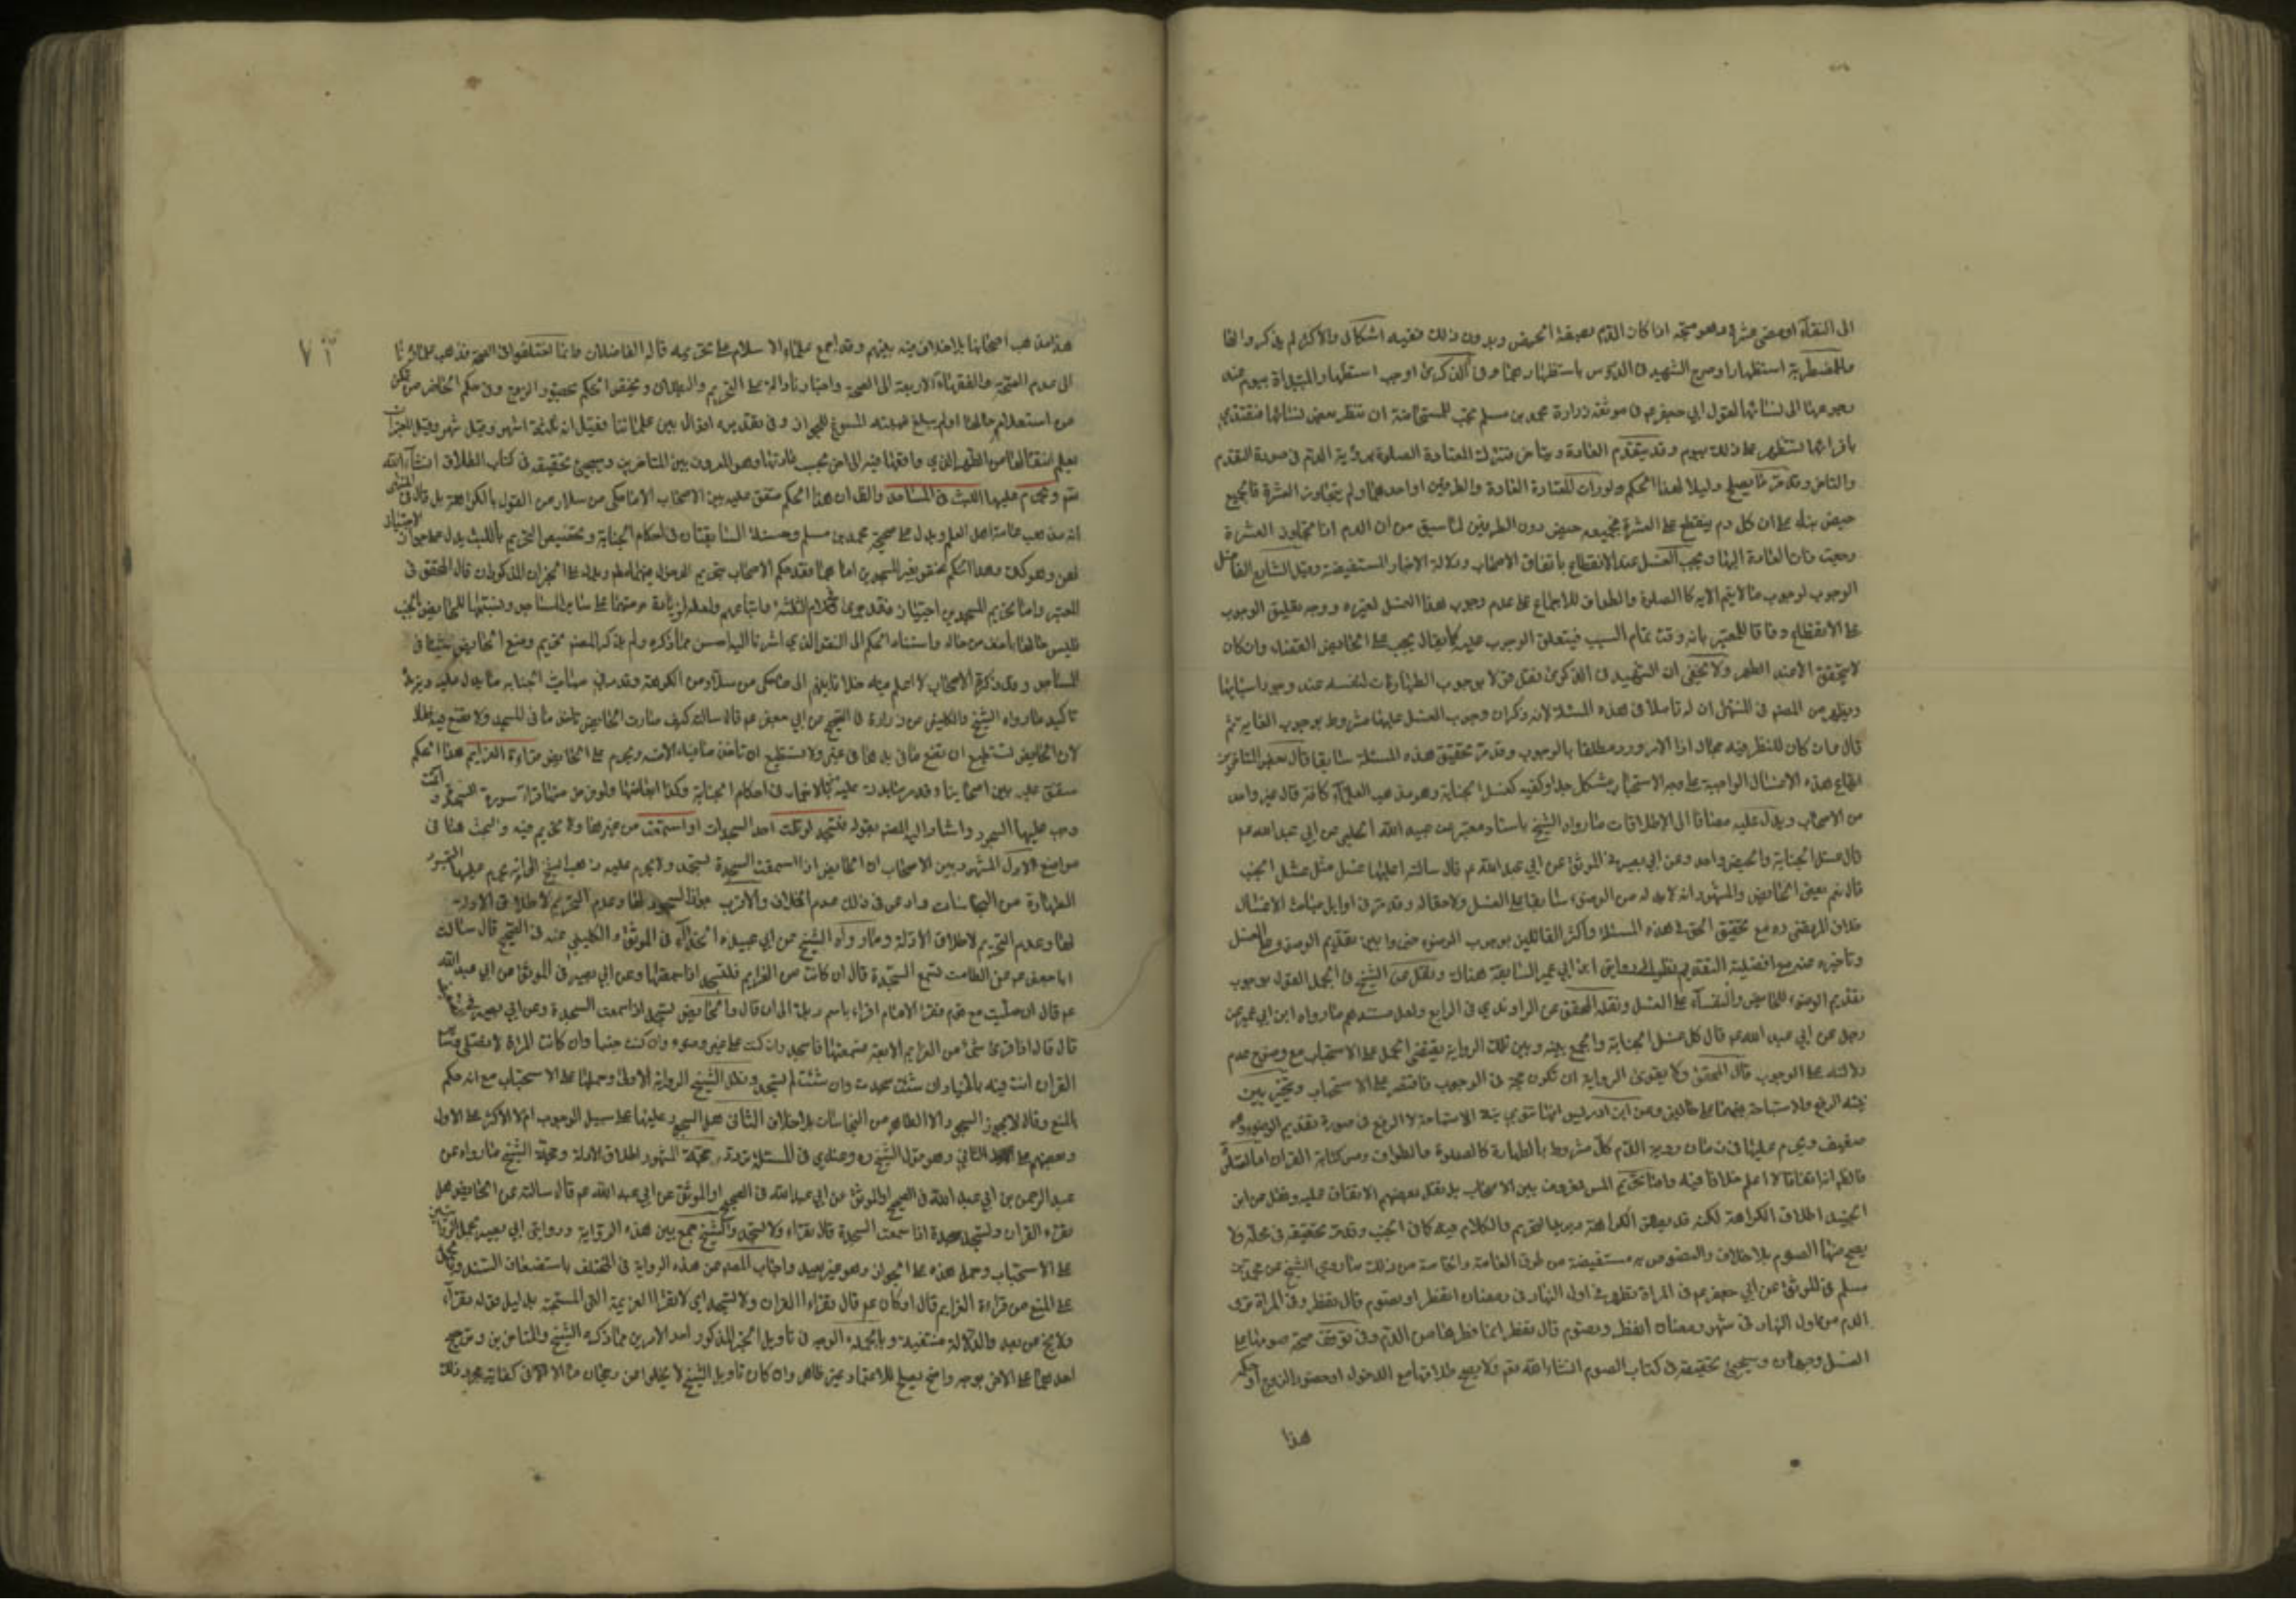 الى النقاء او مضى عشرة وهو متجه اذا كان الدم بصفة الحيض وبدون ذلك ففيه اشكال والاكثر لم يذكروا لها
وللمضطربة استظهارا وصرح الشهيد في الدروس باستظهارهما وفى الذكرى اوجب استظهار المبتدأة بيوم عند
رجوعها الى نسائها لقول ابي جعفر عم في موثقة زرارة ومحمد بن مسلم يجب للمستحاضة ان تنظر بعض نسائها فتقتدي
باقرائها ثم تستظهر على ذلك بيوم وقد يتقدم العادة ويتأخر فتترك المعتادة الصلوة برؤية الدم في صورة التقدم
والتاخر وقد مر ما يصلح دليلا لهذا الحكم ولو رات المعتادة العادة والطرفين او احدهما ولم يتجاوز العشرة فالجميع
حيض بناء على ان كل دم ينقطع على العشرة فجميعه حيض دون الطرفين لما سبق من ان الدم اذا تجاوز العشرة
رجعت ذات العادة اليها ويجب الغسل عند الانقطاع باتفاق الاصحاب ودلالة الاخبار المستفيضة وعلل الشارح الفاضل
الوجوب لوجوب ما لا يتم الا به كالصلوة والطواف للاجماع على عدم وجوب هذا الغسل لغيره ووجه تعليق الوجوب
على الانقطاع وفاقا للمعتبر بانه وقت تمام السبب فيتعلق الوجوب عليه كما يقال يجب على الحائض القضاء وان كان
لا يتحقق الا عند الطهر ولا يخفى ان الشهيد في الذكرى نقل قولا بوجوب الطهارات لنفسه عند وجود اسبابها
ويظهر من المصنف في المنتهى ان له تاملا في هذه المسئلة لانه ذكر ان وجوب الغسل عليها مشروط بوجوب الغاية ثم
قال وان كان للنظر فيه مجال اذا الامر ورد مطلقا بالوجوب وقد مر تحقيق هذه المسئلة سابقا قال بعض المتاخرين
ايقاع هذه الاغسال الواجبة على وجه الاستحباب مشكل جدا وكيفيه كغسل الجنابة وهو مذهب العلماء كافة قال غير واحد
من الاصحاب ويدل عليه مضافا الى الاطلاقات ما رواه الشيخ باسناد معتبر عن عبيد الله الحلبي عن ابي عبد الله عم
قال غسل الجنابة والحيض واحد وعن ابي بصير في الموثق عن ابي عبد الله عم قال سالته اعليها غسل مثل غسل الجنب
قال نعم يعنى الحائض والمشهور انه لا بد له من الوضوء سابقا على الغسل ولاحقا له وقد مر في اوايل مباحث الاغسال
خلاف المرتضى ره مع تحقيق الحق في هذه المسئلة واكثر القائلين بوجوب الوضوء خيروا بين تقديم الوضوء على الغسل
وتأخيره عنه مع افضلية التقديم نظرا الى رواية ابن ابي عمير السابقة هناك ونقل عن الشيخ في الجمل القول بوجوب
تقديم الوضوء للحائض والنفساء على الغسل ونقله المحقق عن الراوندي في الرابع ولعل مستندهم ما رواه ابن ابي عمير عن
رجل عن ابي عبد الله عم قال كل غسل الجنابة والجمع بينه وبين تلك الرواية يقتضى الحمل على الاستحباب مع وضوح عدم
دلالته على الوجوب قال المحقق ولا يقوى الرواية ان تكون حجة في الوجوب فاقتصر على الاستحباب وتخير بين
نية الرفع والاستباحة فيهما على حالين وعن ابن ادريس انها تنوي نية الاستباحة لا الرفع في صورة تقديم الوضوء وهو
ضعيف ويحرم عليها في زمان روية الدم كل مشروط بالطهارة كالصلوة والطواف ومس كتابة القران اما
فالظاهر انه اتفاقا لا اعلم خلافا فيه واما تحريم المس المعروف بين الاصحاب بل نقل بعضهم الاتفاق عليه ونقل عن ابن
الجنيد اطلاق الكراهة لكنه قد يطلق الكراهة ويريد بها التحريم والكلام فيه كما في الجنب وقد مر تحقيقه في محله ولا
يصح منها الصوم بلا خلاف والنصوص به مستفيضة من طرق العامة والخاصة من ذلك ما روى الشيخ عن محمد بن
مسلم في الموثق عن ابي جعفر عم في المراة تطهر في اول النهار في رمضان اتفطر او تصوم قال تفطر وفى المراة ترى
الدم من اول النهار في شهر رمضان اتفطر ام تصوم قال تفطر انما فطرها من الدم وفى توقف صحة صومها على
الغسل وجهان وسيجيئ تحقيقه في كتاب الصوم انشاء الله تعم ولا يصح طلاقها مع الدخول او حضور الزوج او حكمه
هذا
٧٣
هذا مذهب اصحابنا بلا خلاف فيه بينهم وقد اجمع علماء الاسلام على تحريمه قاله الفاضلان وانما اختلفوا في الصحة فذهب علمائنا
الى عدم الصحة والفقهاء الاربعة الى الصحة واخبارنا دالة على التحريم والبطلان ويختص الحكم بحضور الزوج وفى حكم الحاضر من تمكن
من استعلام حالها او لم يبلغ غيبته المسوغ للجواز وفى تقديره اقوال بين علمائنا فقيل انه ثلثة اشهر وقيل شهر وقيل المعتبر ان
يعلم انتقالها من الطهر الذي واقعها فيه الى اخر بحسب عادتها وهو المعروف بين المتاخرين وسيجيئ تحقيقه في كتاب الطلاق انشاء الله
تعم ويحرم عليها اللبث في المساجد والظاهر ان هذا الحكم متفق عليه بين الاصحاب الا ما حكى من سلار من القول بالكراهة بل قال في المنتهى
انه مذهب عامة اهل العلم ويدل عليه صحيحة محمد بن مسلم وحسنته السابقتان في احكام الجنابة وتخصيص التحريم باللبث يدل على جواز الاجتياز
لهن وهو كذلك وهذا الحكم مختص بغير المسجدين اما هما فقد حكم الاصحاب بتحريم الدخول فيهما مطلقا ويدل عليه الخبران المذكوران قال المحقق في
المعتبر واما تحريم المسجدين اجتيازا فقد جرى في كلام الثلثة واتباعهم ولعله لزيادة حرمتهما على سائر المساجد وتشبيها للحائض بالجنب
فليس حالها باخف من حاله واستناد الحكم الى النص الذي اشرنا اليه احسن مما ذكره ولم يذكر المصنف تحريم وضع الحائض شيئا في
المساجد وقد ذكره الاصحاب لا اعلم فيه خلافا بينهم الا ما حكى من سلار من الكراهة وقد سلف في مباحث الجنابة ما يدل عليه ويزيده
تاكيدا ما رواه الشيخ والكليني عن زرارة في الصحيح عن ابي جعفر عم قال سالته كيف صارت الحائض تاخذ ما في المسجد ولا تضع فيه فقال
لان الحائض تستطيع ان تضع ما في يدها في غيره ولا تستطيع ان تاخذ ما فيه الا منه ويحرم على الحائض قراءة العزائم هذا الحكم
متفق عليه بين اصحابنا وقد مر ما يدل عليه من الاخبار في احكام الجنابة وكذا ابعاضها ولو نزعت
وجب عليها السجود واشار اليه المصنف بقوله فتسجد لو تلت احد السجدات او استمعت من غيرها ولا تحريم فيه والبحث هنا في
مواضع الاول المشهور بين الاصحاب ان الحائض اذا استمعت السجدة تسجد ولا يحرم عليه وذهب الشيخ الى انه يحرم عليها السجود
الطهارة من النجاسات وادعى في ذلك عدم الخلاف والاقرب جواز السجود لها وعدم التحريم لاطلاق الادلة
لها وعدم التحريم لاطلاق الادلة وما رواه الشيخ عن ابي عبيدة الحذاء في الموثق والكليني عنه في الصحيح قال سالت
ابا جعفر عم عن الطامث تسمع السجدة قال ان كانت من العزائم فلتسجد اذا سمعتها وعن ابي بصير في الموثق عن ابي عبد الله
عم قال ان صليت مع قوم فقرا الامام اقراء باسم ربك الى ان قال والحائض تسجد اذا سمعت السجدة وعن ابي بصير
قال قال اذا قرئ شئ من العزائم الاربع فسمعتها فاسجد وان كنت على غير وضوء وان كنت جنبا وان كانت المراة لا تصلى وسائر
القران انت فيه بالخيار ان شئت سجدت وان شئت لم تسجد ونقل الشيخ الرواية الاولى وحملها على الاستحباب مع انه حكم
بالمنع وقال لا يجوز السجود الا الطاهر من النجاسات بلا خلاف الثاني هل السجود عليها على سبيل الوجوب ام لا الاكثر على الاول
وبعضهم على الثاني وهو قول الشيخ ره وعندي في المسئلة تردد حجة المشهور اطلاق الادلة وحجة الشيخ ما رواه عن
عبد الرحمن بن ابي عبد الله في الصحيح او الموثق عن ابي عبد الله في الصحيح او الموثق عن ابي عبد الله عم قال سالته عن الحائض هل
تقراء القران وتسجد سجدة اذا سمعت السجدة قال تقراء ولا تسجد والشيخ جمع بين هذه الرواية ورواية ابي بصير بحمل الروايتين
على الاستحباب وحمل هذه على الجواز وهو غير بعيد واجاب المصنف عن هذه الرواية في المختلف باستضعاف السند وبالحمل
على المنع من قراءة العزائم قال اذ كان عم قال تقراء القران ولا تسجد اي لا تقرا العزيمة التى المستجمة بدليل قوله تقراء
ولا يخ من بعد والدلالة منتفية وبالجملة الوجه في تاويل الخبر المذكور احد الامرين مما ذكره الشيخ والمتاخرين وترجيح
احدهما على الاخر بوجه واضح يصلح للاعتماد غير ظاهر وان كان تاويل الشيخ لا يخلو من رجحان ما الا ان في كفاية مجرد ذلك